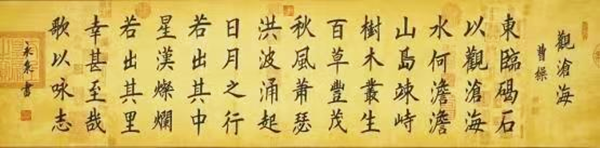 觀滄海
曹操
東臨碣石
以觀滄海
水何澹澹
山島竦峙
樹木叢生
百草豐茂
秋風蕭瑟
洪波涌起
日月之行
若出其中
星漢燦爛
若出其里
幸甚至哉
歌以咏志
書